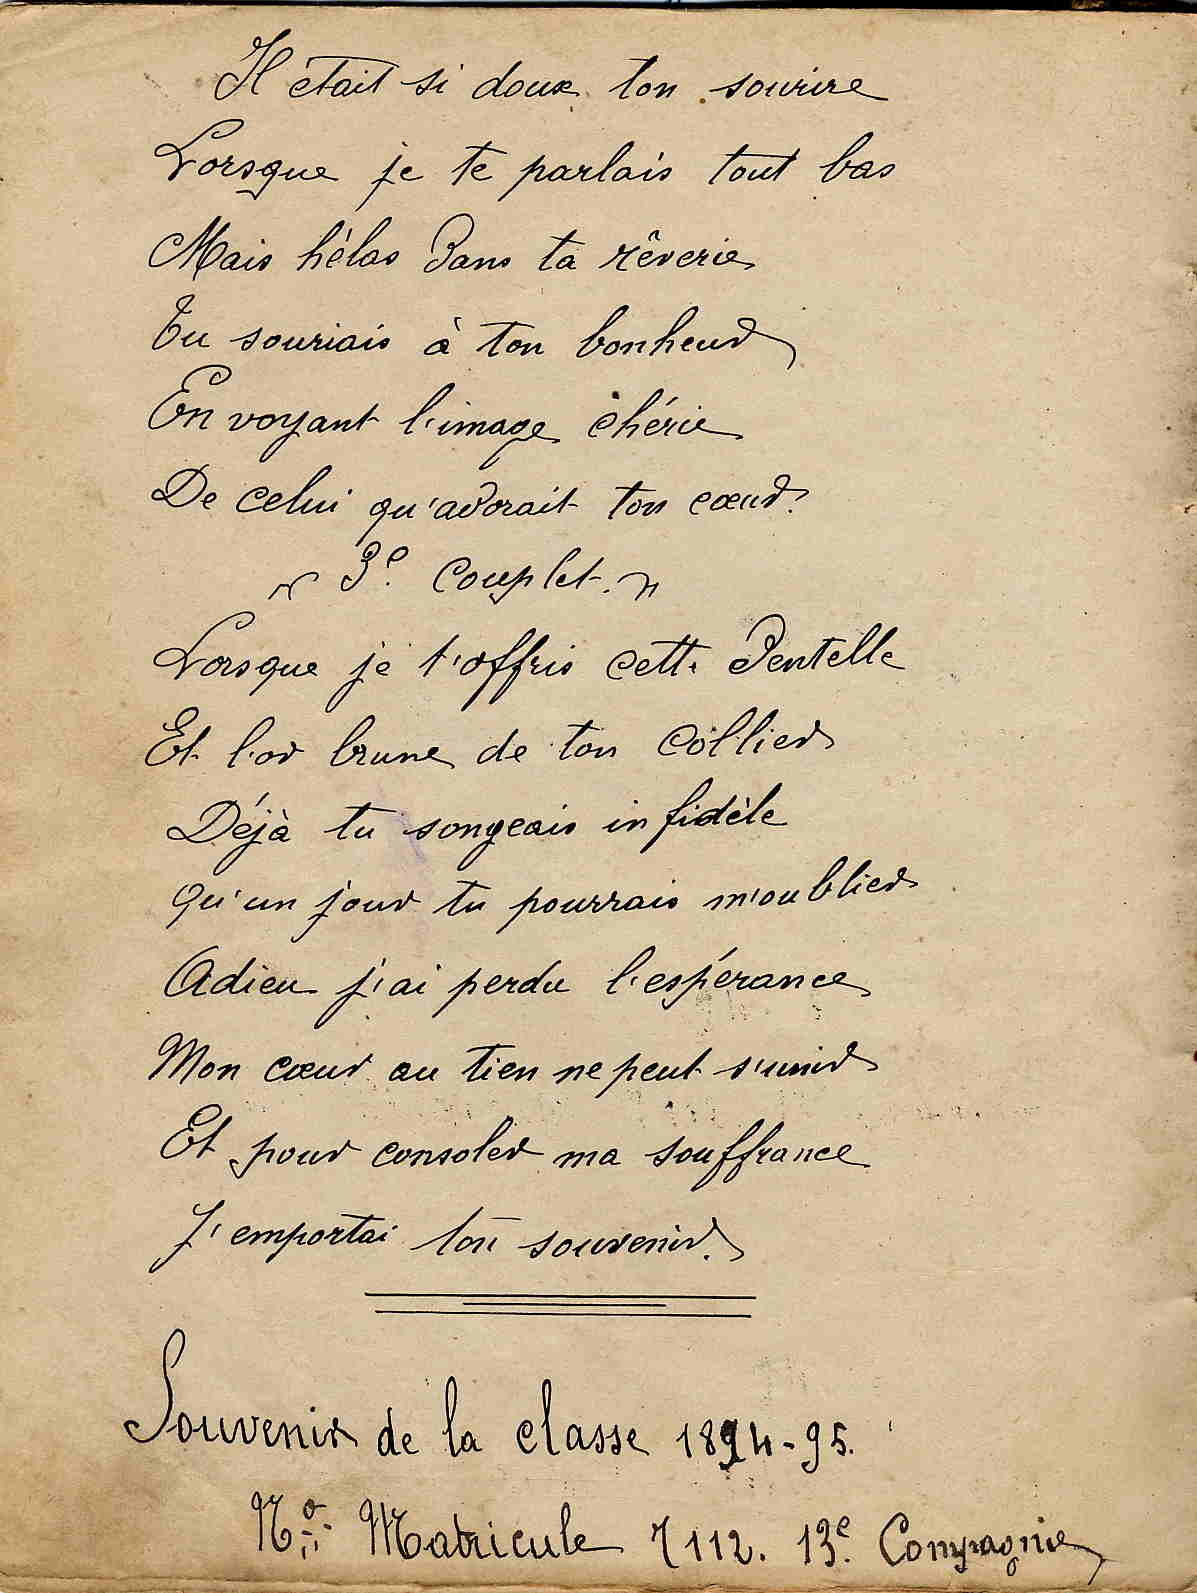 Il était si doux ton sourire
Lorsque je te parlais tout bas
Mais hélas dans ta rêverie
Tu souriais à ton bonheur
En voyant l'image chérie
De celui qu'adorait ton cœur.
3e. Couplet.
Lorsque je t'offris cette dentelle
Et l'or brune de ton collier
Déjà tu songeais infidèle
Qu'un jour tu pourrais m'oublier
Adieu j'ai perdu l'espérance
Mon cœur au tien ne peut s'unir
Et pour consoler ma souffrance
J'emportai ton souvenir.
Souvenir de la classe 1894-95.
No Matricule 7112. 13e. Compagnie